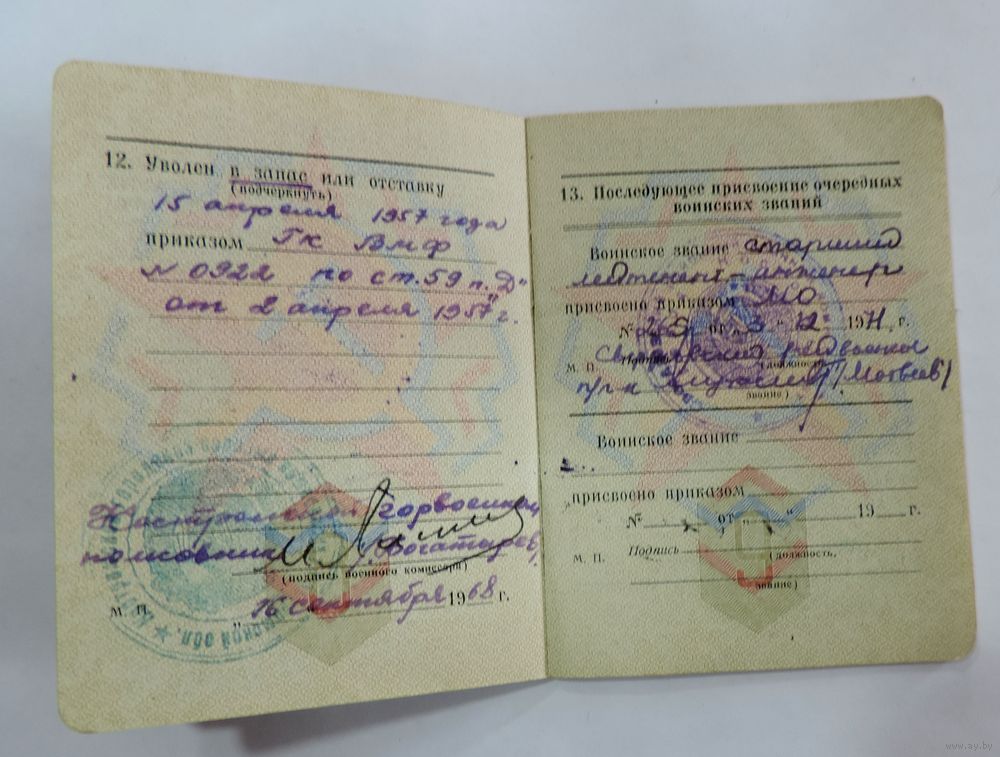 12. Уволен в запас или отставку
(подчеркнуть)
15 апреля 1957 года
приказом ГК ВМФ
№ 0922 по ст. 59 п. „Д"
от 2 апреля 1957 г.
горвоенком
полковник Богатырев
(подпись военного комиссара)
М. П. „16" сентября 1968 г.
обл.
13. Последующее присвоение очередных
воинских званий
Воинское звание старший
лейтенант-инженер
присвоено приказом МО
№ от „3" 12 1971 г.
М. П. Подпись (должность,
п/п-к (Матвеев)
звание)
Воинское звание
присвоено приказом
№ от „ " 19 г.
М. П. Подпись (должность,
звание)
www.ay.by